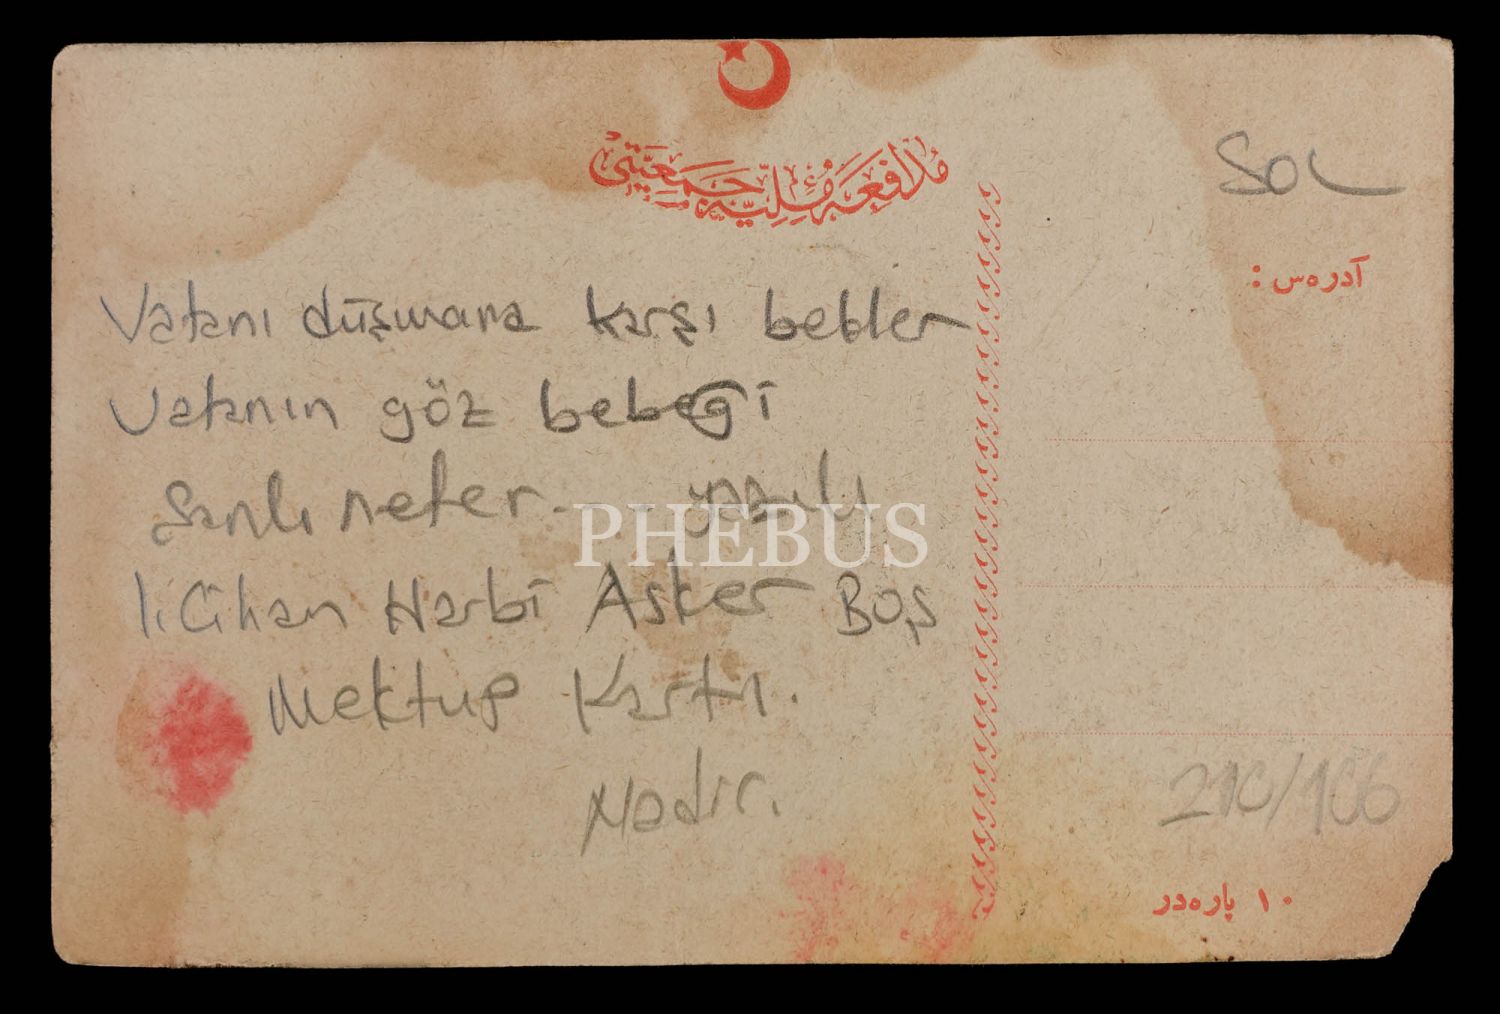 مدافعهٔ ملیه جمعیتی
SOL
آدرەس :
Vatanı düşmana karşı bekler
Vatanın göz bebeği
Şanlı nefer yazılı
PHEBUS
I. Cihan Harbi Asker Boş
Mektup Kartı.
Nadir.
210/106
١٠ پارەدر